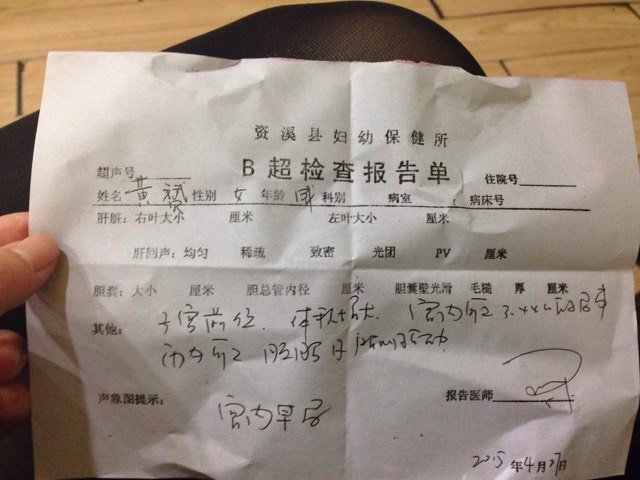 资溪县妇幼保健所
B超检查报告单
超声号 住院号
姓名 黄斌 性别 女 年龄 成 科别 病室 病床号
肝脏：右叶大小 厘米 左叶大小 厘米
肝回声：均匀 稀疏 致密 光团 PV 厘米
胆囊：大小 厘米 胆总管内径 厘米 胆囊壁光滑 毛糙 厚 厘米
其他： 子宫前位. 体积增大. 宫内见
内可见 胚胎
声象图提示： 宫内早孕 报告医师
2015年4月27日